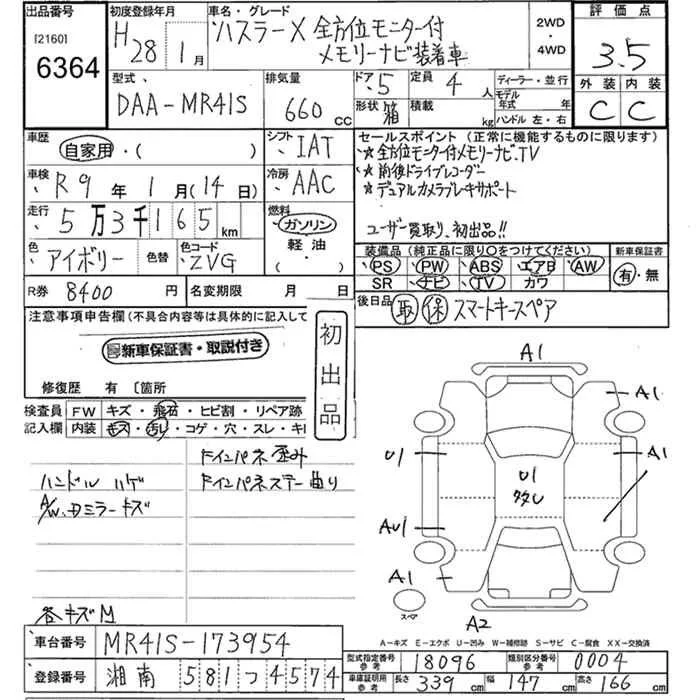 出品番号 初度登録年月 車名・グレード 評価点
[2160] 6364 H28 1月 ハスラーX 全方位モニター付 2WD・4WD 3.5
メモリーナビ装着車
型式 排気量 ドア 定員 ディーラー・並行 外装 内装
DAA-MR41S 660cc 5 4人 モデル年式 年 C C
形状 箱 積載 kg ハンドル 左・右
車歴 自家用・( ) シフト IAT セールスポイント (正常に機能するものに限ります)
☆全方位モニター付メモリーナビ.TV
車検 R9年1月(14日) 冷房 AAC ☆前後ドライブレコーダー
☆デュアルカメラブレーキサポート
走行 5万3千165km 燃料 ガソリン
軽油
( )
ユーザー買取り、初出品!!
色 アイボリー 色替 色コード ZVG 装備品(純正品に限り〇をつけてください) 新車保証書
PS PW ABS エアB AW 有・無
SR ナビ TV カワ
R券 8400円 名変期限 月 日 後日品 取 保 スマートキースペア
注意事項申告欄(不具合内容等は具体的に記入して
新車保証書・取説付き
初出品
修復歴 有 〔箇所
検査員記入欄 FW キズ・飛石・ヒビ割・リペア跡
内装 キズ・汚レ・コゲ・穴・スレ・キレ
ハンドル ハゲ
A/W、ドミラーキズ
各キズ有
ドインパネ歪み
ドインパネステー曲り
A1
A1
U1 A1
U1
多し
AU1
A1
スペア
A2
A-キズ E-エクボ U-凹み W-補修跡 S-サビ C-腐食 XX-交換済
車台番号 MR41S-173954
型式指定番号 参考 18096 類別区分番号 参考 0004
登録番号 湘南 581つ4574
車庫証明用 参考 長さ 339cm 幅 147cm 高さ 166cm